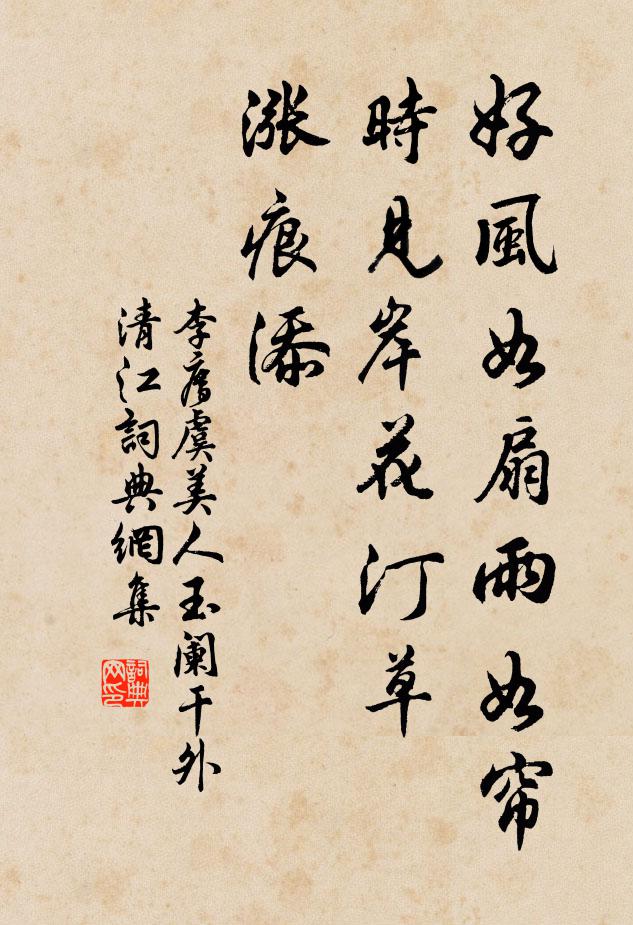 好風如扇雨如帘
時見岸花汀草
漲痕添
李廌虞美人玉阑干外
清江詞典網集
詞典网印